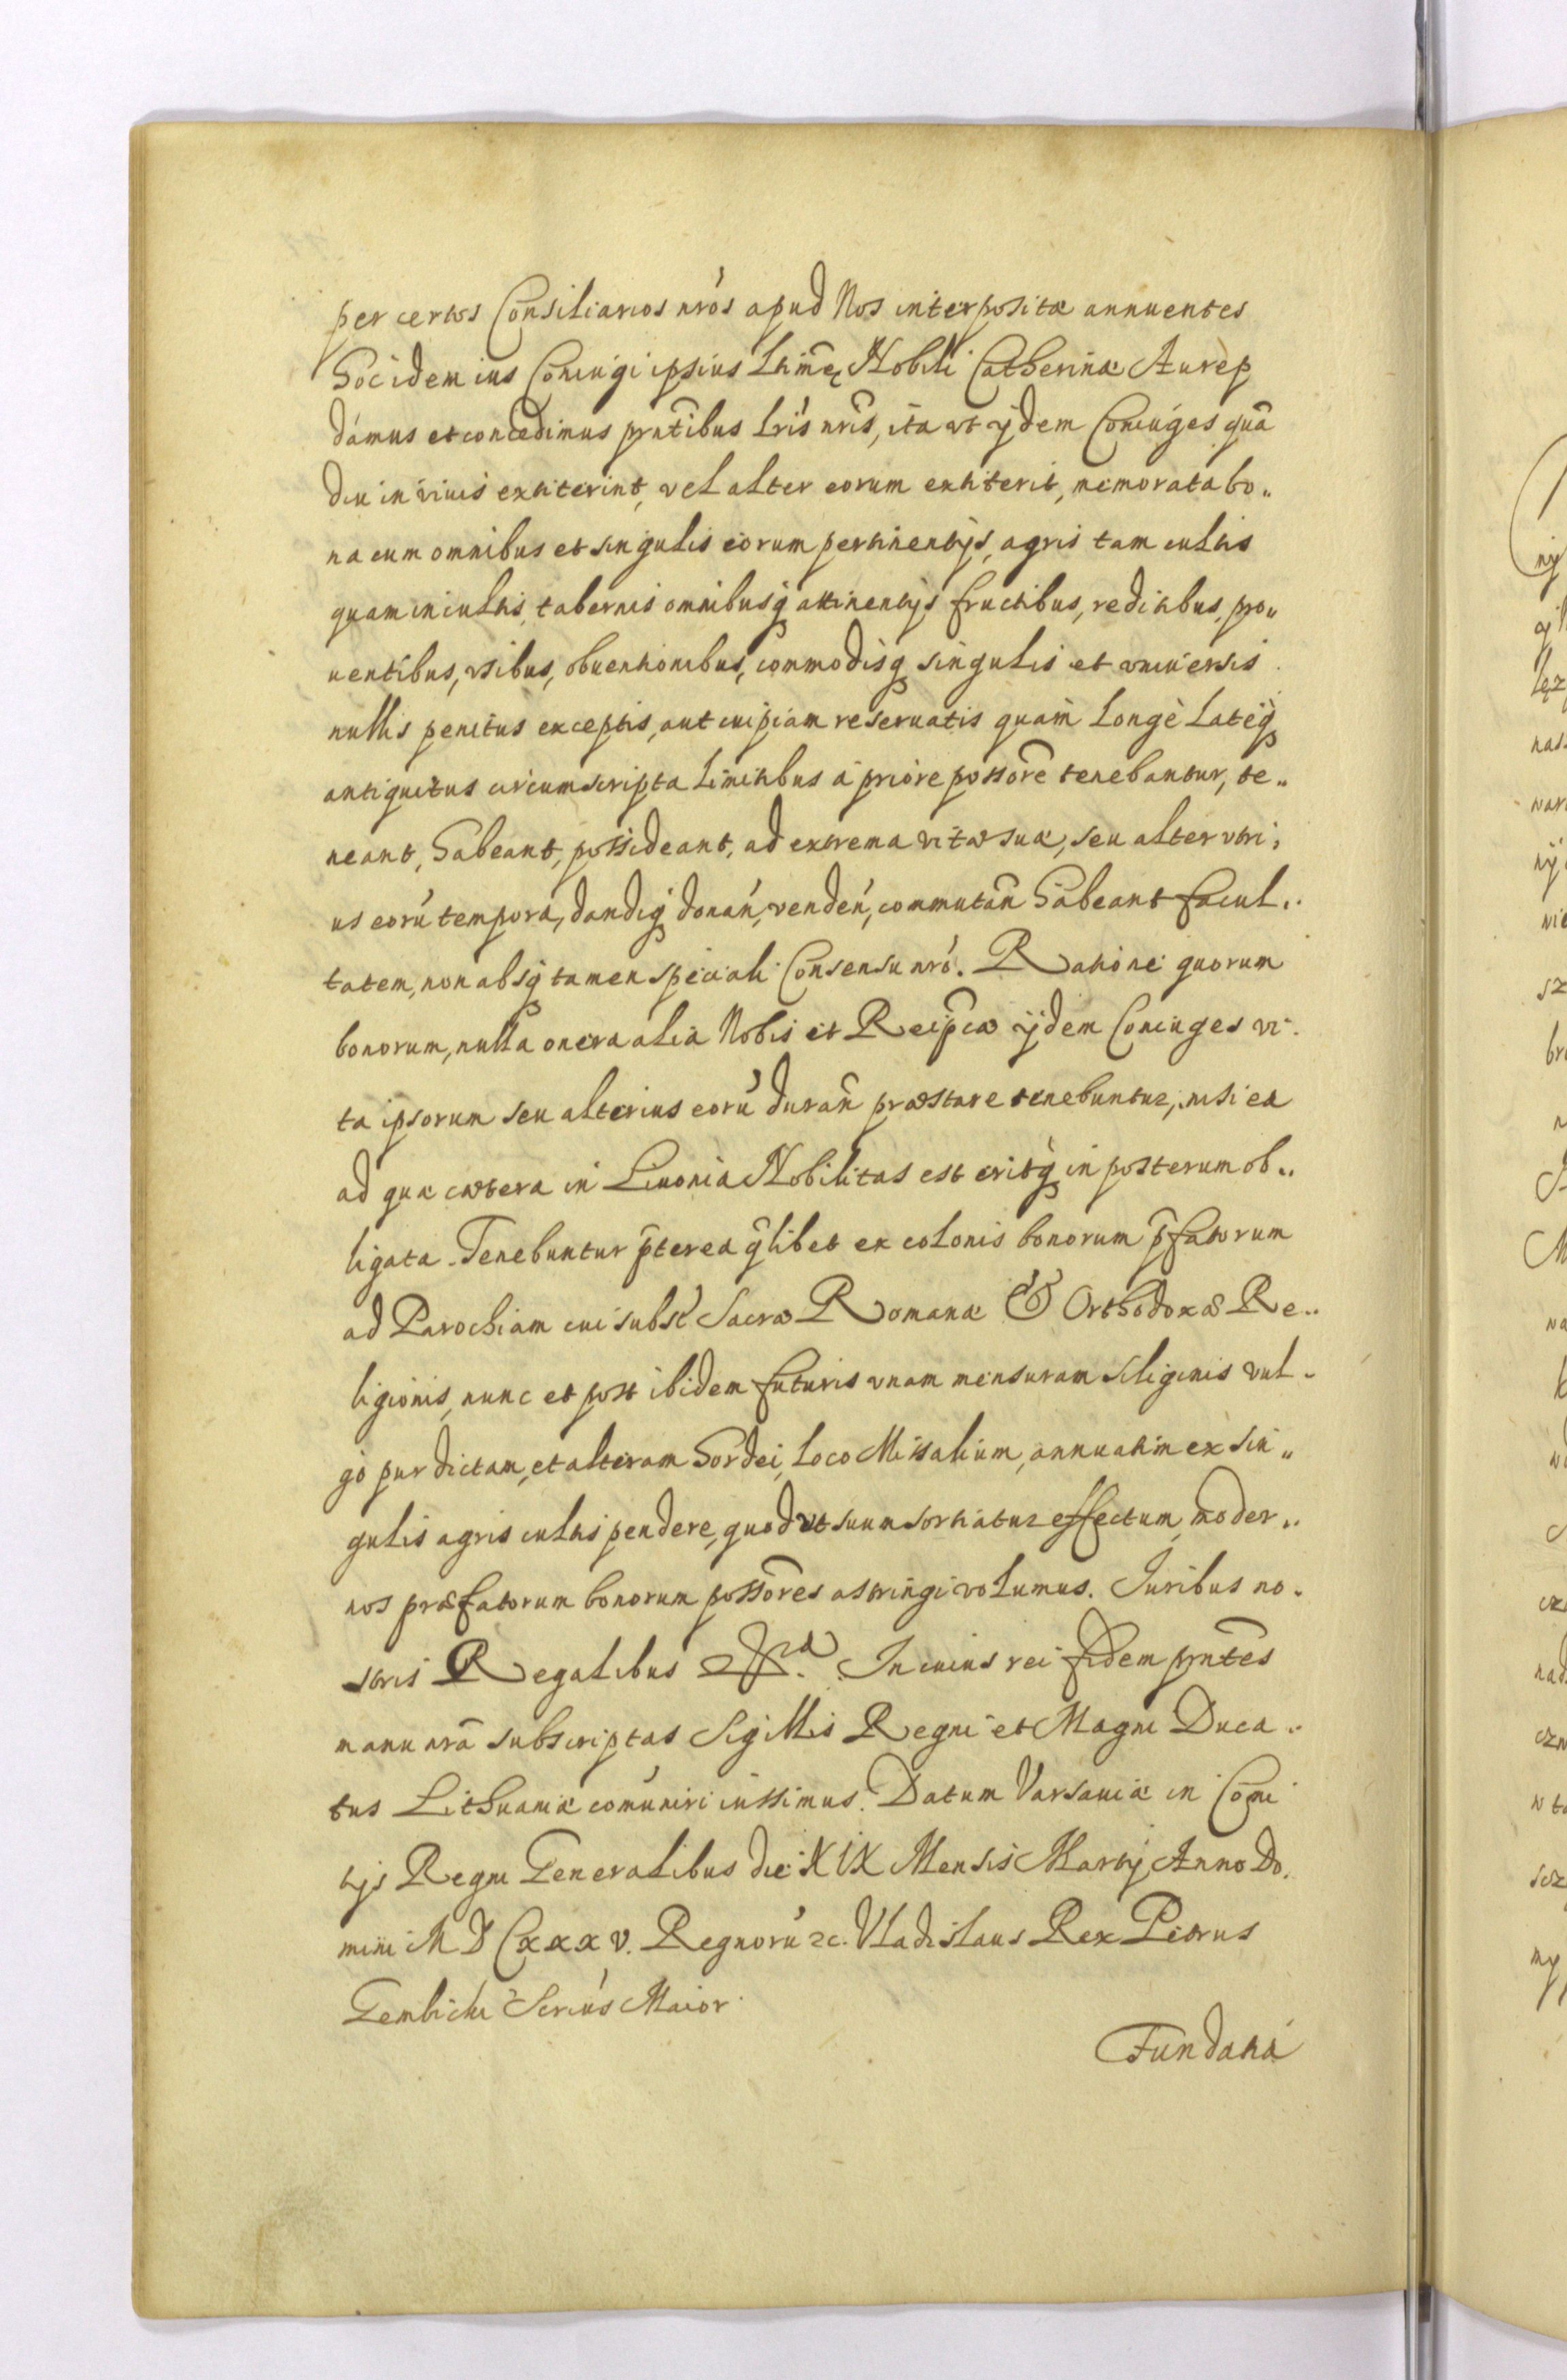 per certos Consiliarios nrós apud Nos interpositæ annuentes
hoc idem ius Coniugi ipsius Lhimę Nobili Catherinæ Aurep
damus et concedimus prñtibus Lris nris, ita vt ijdem Coniuges quã
diu in viuis extiterint, vel alter eorum extiterit, memorata bo„
na cum omnibus et singulis eorum pertinentijs, agris tam cultis
quam incultis, tabernis omnibusq attinentijs fructibus, reditibus, pro„
uentibus, vsibus, obuentionibus, commodisq singulis et vniuersis
nullis penitus exceptis, aut cuipiam reseruatis quam Longè Latèq
antiquitus circumscripta Limitibus à priore possore tenebantur, te„
neant, habeant, possideant, ad extrema vitæ suæ, seu alter vtri„
us eorú tempora, dandiq donań, vendeń, commutañ habeant facul„
tatem, non absq tamen speciali Consensu nró. Ratione quorum
bonorum, nulla onera alia Nobis et Reipcæ ijdem Coniuges vi„
ta ipsorum seu alterius eorú durañ præstare tenebuntur, nisi ea
ad quæ cætera in Liuonia Nobilitas est eritq in posterum ob„
ligata. Tenebuntur p̃terea q̃libet ex colonis bonorum p̃fatorum
ad Parochiam cui subsć Sacræ Romanæ & Orthodoxæ Re„
ligionis, nunc et post ibidem futuris vnam mensuram siliginis vul„
go pur dictam, et alteram hordei, Loco Missalium, annuatim ex sin„
gulis agris cultis pendere, quod vt suum sortiatur effectum, moder„
nos præfatorum bonorum possores astringi volumus. Iuribus no„
stris Regalibus In cuius rei fidem prñtes
manu nrã subscriptas Sigillis Regni et Magni Duca„
tus Lithuaniæ comúniri iussimus. Datum Varsauiæ in Comi
tijs Regni Generalibus die XIX Mensis Martij Anno Do„
mini M D Cxxx v. Regnorú &c. Vladislaus Rex Petrus
Gembicki Secriús Maior.
Fundatia